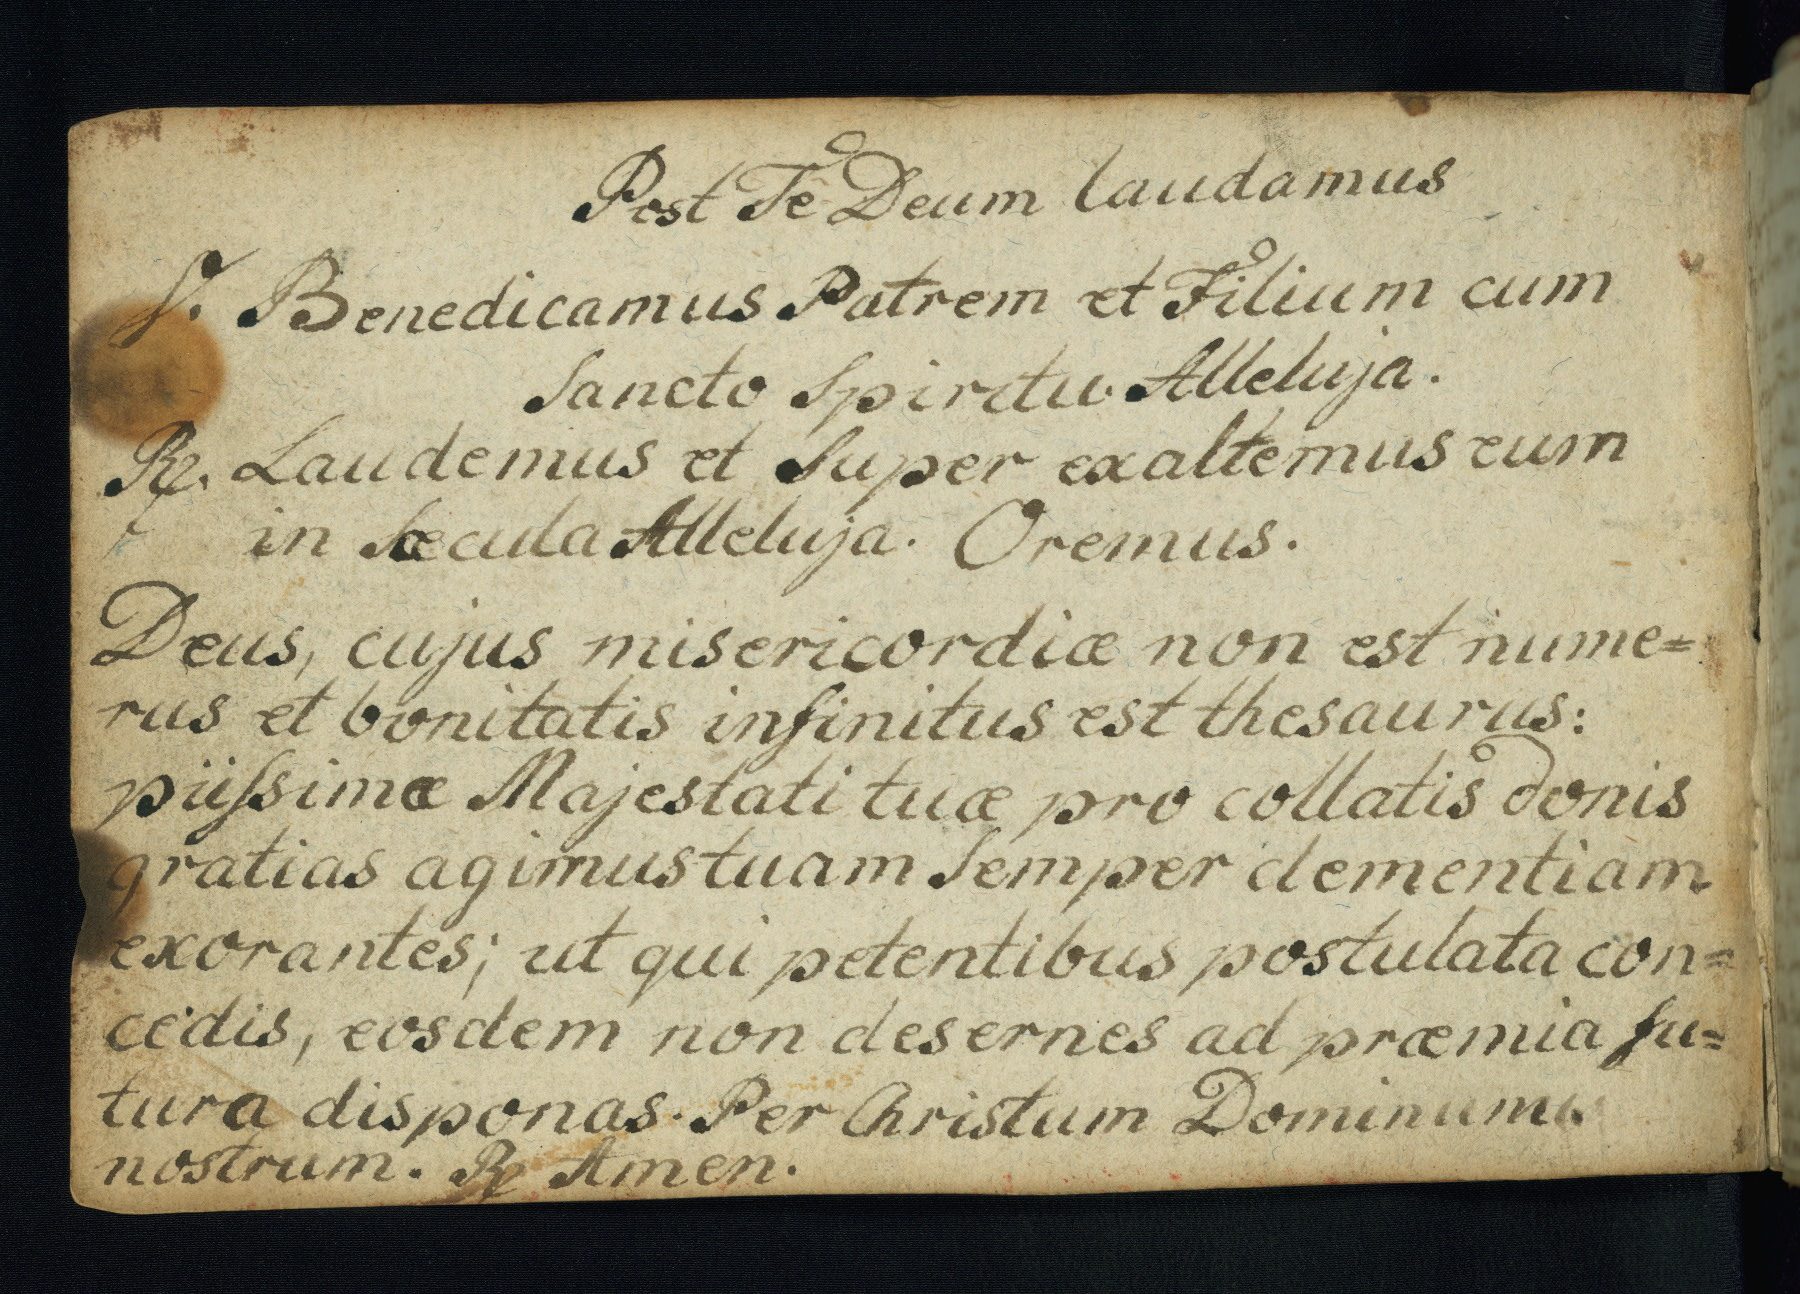 Post Te Deum laudamus
℣. Benedicamus Patrem et Filium cum
Sancto Spiritu. Alleluja.
℟. Laudemus et Super exaltemus eum
in Sæcula Alleluja. Oremus.
Deus, cujus misericordiæ non est nume=
rus et bonitatis infinitus est thesaurus:
piissimæ Majestati tuæ pro collatis donis
gratias agimus tuam Semper clementiam
exorantes; ut qui petentibus postulata con=
cedis, eosdem non desernes ad præmia fu=
tura disponas. Per Christum Dominum
nostrum. ℟ Amen.